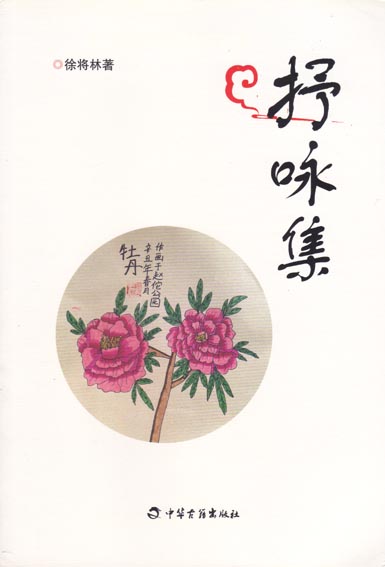 徐将林著
抒咏集
牡丹
辛丑年春月
作画于赵佗公园
中华古籍出版社